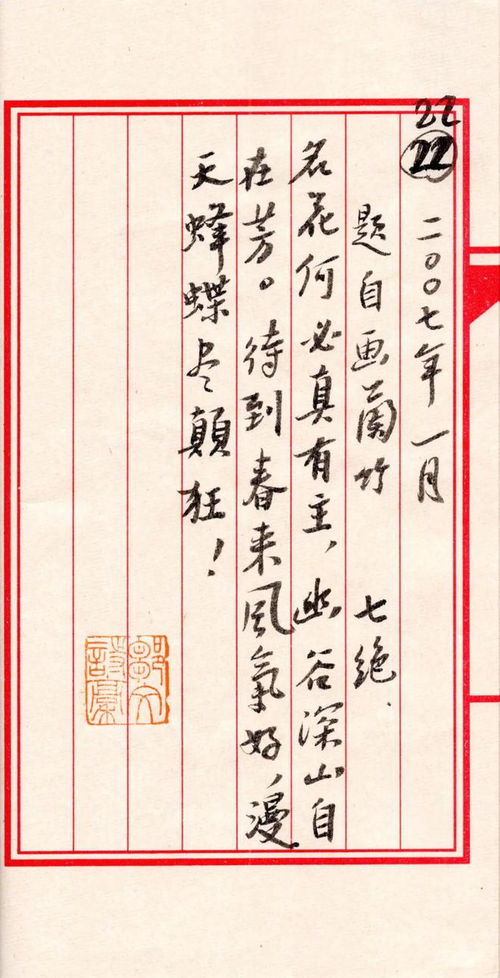 22
22
二〇〇七年一月
题自画蘭竹 七绝.
名花何必真有主，幽谷深山自
在芳。待到春来风氣好，漫
天蜂蝶尽顛狂！